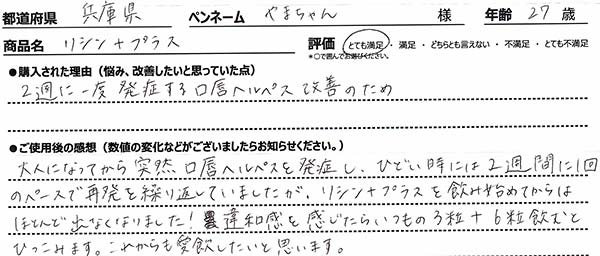 都道府県 兵庫県 ペンネーム やまちゃん 様 年齢 27 歳
商品名 リジン+プラス 評価 とても満足 ・ 満足 ・ どちらとも言えない ・ 不満足 ・ とても不満足
*○で囲んでお選びください。
●購入された理由（悩み、改善したいと思っていた点）
2週に一度発症する口唇ヘルペス改善のため
●ご使用後の感想（数値の変化などがございましたらお知らせください。）
大人になってから突然口唇ヘルペスを発症し、ひどい時には2週間に1回
のペースで再発を繰り返していましたが、リジン+プラスを飲み始めてからは
ほとんど出なくなりました！違和感を感じたらいつもの3粒+6粒飲むと
ひっこみます。これからも愛飲したいと思います。